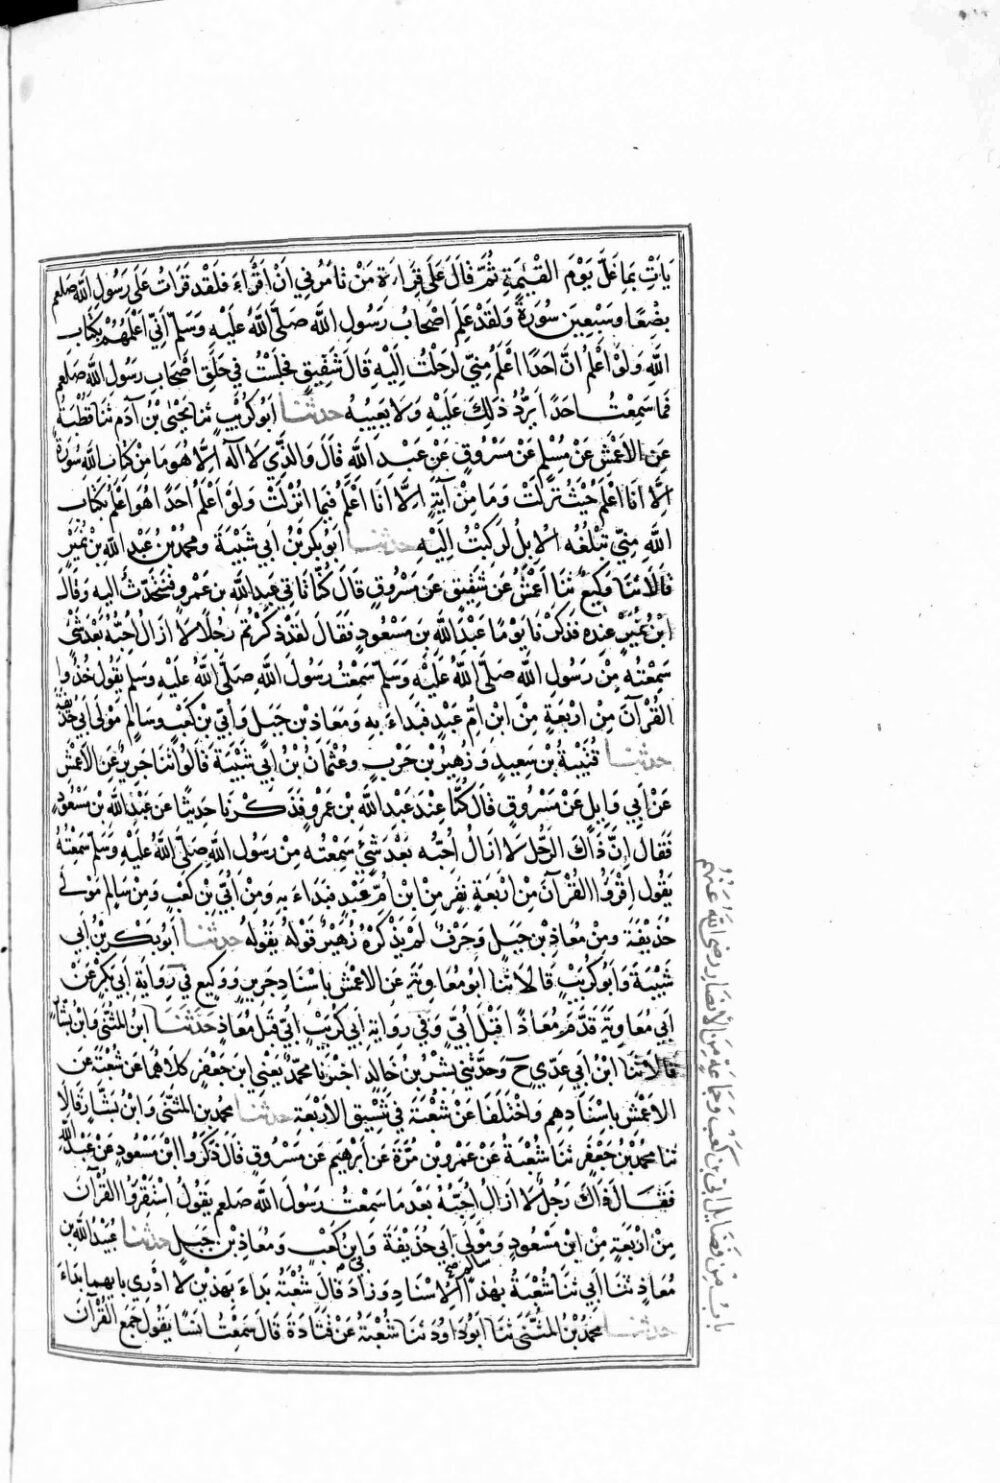 يَاتِ بِمَا غَلَّ يَوْمَ الْقِيٰمَةِ ثُمَّ قَالَ عَلَى قِرَاءَةِ مَنْ تَامُرُنِي اَنْ اَقْرَاءَ فَلَقَدْ قَرَاتُ عَلَى رَسُولِ اللَّه صلعم
بِضْعًا وَسَبْعِينَ سُورَةً وَلَقَدْ عَلِمَ اَصْحَابُ رَسُولِ اللَّه صَلَّى اللَّهُ عَلَيْهِ وَسَلَّمَ اَنِّي اَعْلَمُهُمْ بِكِتَابِ
اللَّهِ وَلَوْ اَعْلَمُ اَنَّ اَحَدًا اَعْلَمُ مِنِّي لَرَحَلْتُ اِلَيْهِ قَالَ شَقِيقٌ فَجَلَسْتُ فِي حَلَقِ اَصْحَابِ رَسُولِ اللَّه صلعم
فَمَا سَمِعْتُ اَحَدًا يَرُدُّ ذَلِكَ عَلَيْهِ وَلَا يَعِيبُهُ حدثنا اَبُو كُرَيْبٍ ثنا يَحْيَى بْنُ آدَمَ ثنا قُطْبَةُ
عَنِ الْاَعْمَشِ عَنْ مُسْلِمٍ عَنْ مَسْرُوقٍ عَنْ عَبْدِ اللَّه قَالَ وَالَّذِي لَا اِلَهَ اِلَّا هُوَ مَا مِنْ كِتَابِ اللَّه سُورَةٌ
اِلَّا اَنَا اَعْلَمُ حَيْثُ نَزَلَتْ وَمَا مِنْ آيَةٍ اِلَّا اَنَا اَعْلَمُ فِيمَا اُنْزِلَتْ وَلَوْ اَعْلَمُ اَحَدًا هُوَ اَعْلَمُ بِكِتَابِ
اللَّهِ مِنِّي تَبْلُغُهُ الْاِبِلُ لَرَكِبْتُ اِلَيْهِ حدثنا اَبُو بَكْرِ بْنُ اَبِي شَيْبَةَ وَمُحَمَّدُ بْنُ عَبْدِ اللَّهِ بْنِ نُمَيْرٍ
قَالَا ثنا وَكِيعٌ ثنا اَعْمَشُ عَنْ شَقِيقٍ عَنْ مَسْرُوقٍ قَالَ كُنَّا نَاتِي عَبْدَ اللَّهِ بن عَمْرٍو فَنَتَحَدَّثُ اليه وَقَالَ
ابْنُ نُمَيْرٍ عِنْدَهُ فَذَكَرْنَا يَوْمًا عَبْدَ اللَّهِ بنَ مَسْعُودٍ فَقَالَ لَقَدْ ذَكَرْتُمْ رَجُلًا لَا اَزَالُ اُحِبُّهُ بَعْدَ شَيْءٍ
سَمِعْتُهُ مِنْ رَسُولِ اللَّه صَلَّى اللَّهُ عَلَيْهِ وَسَلَّمَ سَمِعْتُ رَسُولَ اللَّهِ صَلَّى اللَّهُ عَلَيْهِ وَسَلَّم يَقُولُ خُذُوا
الْقُرْآنَ مِنْ اَرْبَعَةٍ مِنْ ابْنِ اُمِّ عَبْدٍ فَبَدَاءَ بِهِ وَمَعَاذِ بْنِ جَبَلٍ وَاُبَيِّ بْنِ كَعْبٍ وَسَالِمٍ مَوْلَى اَبِي حُذَيْفَةَ
حدثنا قُتَيْبَةُ بْنُ سَعِيدٍ وَزُهَيْرُ بْنُ حَرْبٍ وَعُثْمَانُ بْنُ اَبِي شَيْبَةَ قَالُوا ثنا جَرِيرٌ عَنِ الْاَعْمَشِ
عَنْ اَبِي وَايِلٍ عَنْ مَسْرُوقٍ قَالَ كُنَّا عِنْدَ عَبْدِ اللَّه بْنِ عَمْرٍو فَذَكَرْنَا حَدِيثًا عَنْ عَبْدِ اللَّهِ بْنِ مَسْعُودٍ
فَقَالَ اِنَّ ذَاكَ الرَّجُلَ لَا اَزَالُ اُحِبُّه بَعْدَ شَيْءٍ سَمِعْتُه مِنْ رَسُولِ اللَّهِ صَلَّى اللَّهُ عَلَيْهِ وَسَلَّمَ سَمِعْتُهُ
يَقُولُ اِقْرَوُا الْقُرْآنَ مِنْ اَرْبَعَةِ نَفَرٍ مِنْ ابْنِ اُمِّ عَبْدٍ فَبَدَاءَ بِهِ وَمِنْ اُبَيِّ بْنِ كَعْبٍ وَمِنْ سَالِمٍ مَوْلَى
حُذَيْفَةَ وَمِنْ مُعَاذِ بْنِ جَبَلٍ وَحَرْفٌ لَمْ يَذْكُرْهُ زُهَيْرٌ قَوْلُهُ يَقُولُهُ حدثنا اَبُو بَكْرِ بْنُ اَبِي
شَيْبَةَ وَاَبُو كُرَيْبٍ قَالَا ثنا اَبُو مُعَاوِيَةَ عَنِ الْاَعْمَشِ بِاِسْنَادِ جَرِيرٍ وَوَكِيعٍ فِي رِوَايَةِ اَبِي بَكْرٍ عَنْ
اَبِي مُعَاوِيَةَ قَدَّمَ مُعَاذًا قَبْلَ اُبَيٍّ وَفِي رِوَايَةِ اَبِي كُرَيْبٍ اُبَيٌّ قَبْلَ مُعَاذٍ حَدَّثَنَا ابْنُ الْمُثَنَّى وَابْنُ بَشَّارٍ
قَالَا ثَنَا ابْنُ اَبِي عَدِيٍّ ح وَحَدَّثَنِي بِشْرُ بْنُ خَالِدٍ اَخْبَرَنَا مُحَمَّدٌ يَعْنِي ابنَ جَعْفَرٍ كِلَاهُمَا عَنْ شُعْبَةَ عَنِ
الْاَعْمَشِ بِاِسْنَادِهِمْ وَاخْتَلَفَا عَنْ شُعْبَةَ فِي تَنْسِيقِ الْاَرْبَعَةِ حدثنا مُحَمَّدُ بن الْمُثَنَّى وَابْنُ بَشَّارٍ قَالَا
ثنا مُحَمَّدُ بْنُ جَعْفَرٍ ثنا شُعْبَةُ عَنْ عَمْرِو بْنِ مُرَّةَ عَنْ اِبْرَاهِيمَ عَنْ مَسْرُوقٍ قَالَ ذَكَرُوا ابْنَ مَسْعُودٍ عِنْدَ عَبْدِ اللَّهِ
فَقَالَ ذَاكَ رَجُلٌ لَا اَزَالُ اُحِبُّهُ بَعْدَ مَا سَمِعْتُ رَسُولَ اللَّه صلعم يَقُولُ اسْتَقْرَوُا الْقُرْآنَ
مِنْ اَرْبَعَةٍ مِنْ ابْنِ مَسْعُودٍ وَمَوْلَى اَبِي حُذَيْفَةَ وَاُبَيِّ بْنِ كَعْبٍ وَمُعَاذِ بْنِ جَبَلٍ حدثنا عُبَيْدُ اللَّهِ بن
سالم صح
مُعَاذٍ ثنا اَبِي ثنا شُعْبَةُ بِهَذَا الْاِسْنَادِ وَزَادَ قَالَ شُعْبَةُ بَدَاءَ بِهَذَيْنِ لَا اَدْرِي بِاَيِّهِمَا بَدَاءَ
حدثنا مُحَمَّدُ بْنُ الْمُثَنَّى ثنا اَبُو دَاوُدَ ثنا شُعْبَةُ عَنْ قَتَادَةَ قَالَ سَمِعْتُ اَنَسًا يَقُولُ جَمَعَ الْقُرْآنَ
بَابُ مِنْ فَضَايِلِ اُبَيِّ بْنِ كَعْبٍ وَجَمَاعَةٍ مِنَ الْاَنْصَارِ رضي اللَّه عَنْهُمْ